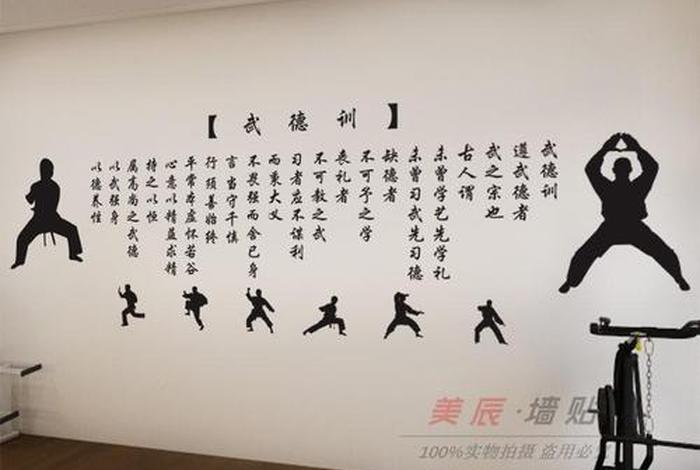 【武德训】
武德训
遵武德者
武之宗也
古人谓
未曾学艺先学礼
未曾习武先习德
缺德者
不可予之学
丧礼者
不可教之武
习者应不谋利
而秉大义
不畏强而舍己身
言当守千慎
行须善始终
平常本虚怀若谷
心意以精益求精
持之以恒
属高尚之武德
以武强身
以德养性
美辰·墙贴
100%实物拍摄 盗用必究